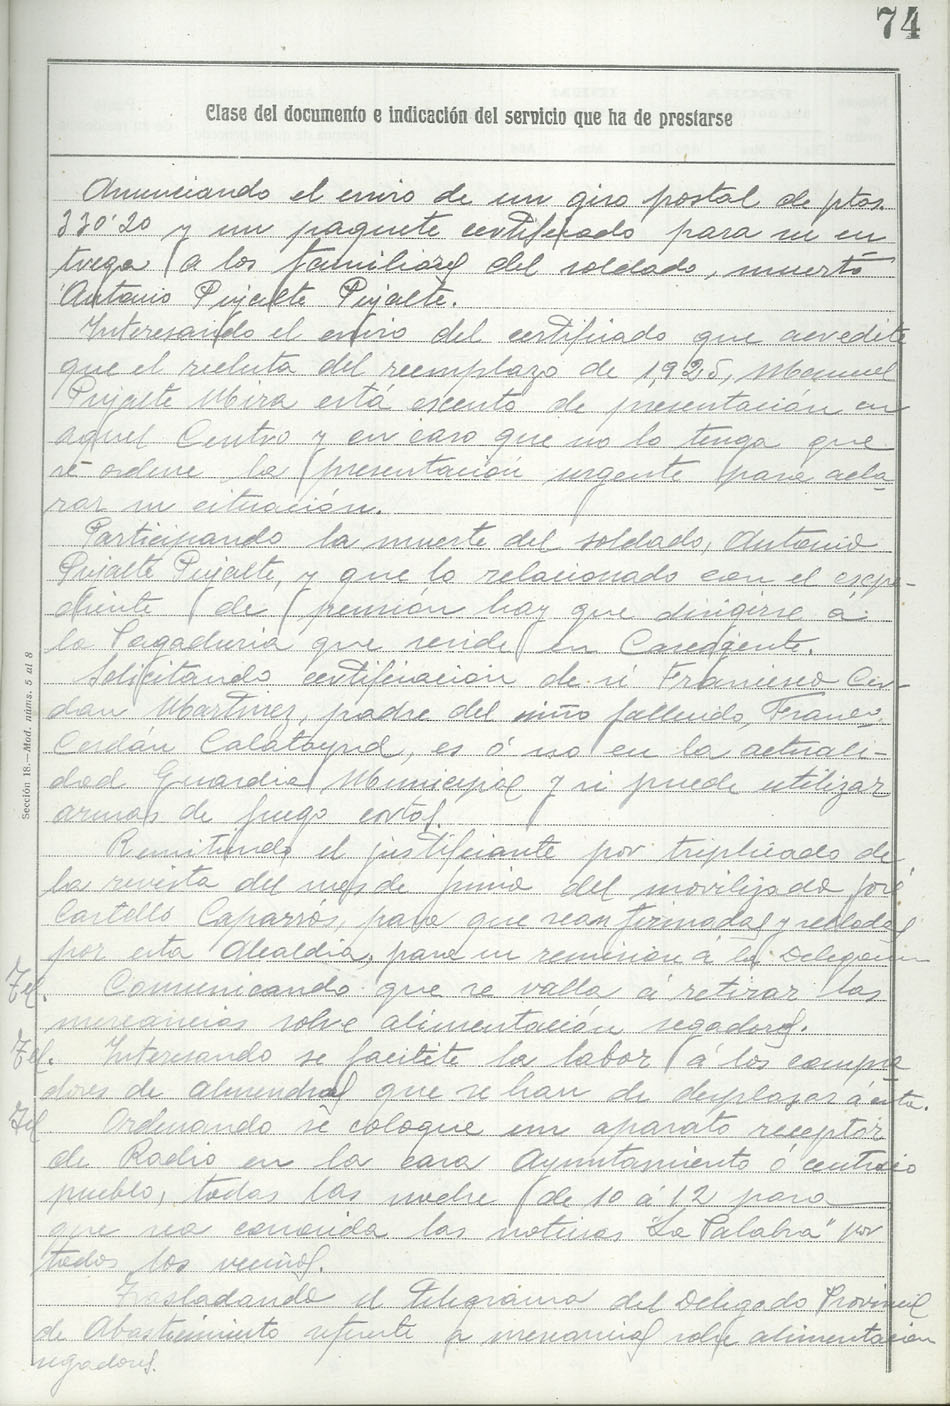 74
Clase del documento e indicación del servicio que ha de prestarse
Anunciando el envio de un giro postal de ptas.
330'20 y un paquete certificado para su en
trega a los familiares del soldado, muerto
Antonio Pujalte Pujalte.
Interesando el envio del certificado que acredite
que el recluta del reemplazo de 1,925, Manuel
Pujalte Mira está escento de presentación en
aquel Centro y en caso que no lo tenga que
se ordene la presentación urgente para acla
rar su situación.
Participando la muerte del soldado, Antonio
Pujalte Pujalte, y que lo relacionado con el espe-
diente de pensión hay que dirigirse á
la Pagaduria que reside en Carcagente.
Solicitando certificación de si Francisco Cer-
dan Martinez, padre del niño fallecido, Franco.
Cerdán Calatayud, es ó no en la actuali-
dad Guardia Municipal y si puede utilizar
armas de fuego cortas.
Remitiendo el justificante por triplicado de
la revista del mes de junio del movilizado José
Castello Caparrós, para que sean firmadas y selladas
por esta Alcaldia, para su remisión á la Delegación
Tel. Comunicando que se valla á retirar las
mercancias sobre alimentación segadores.
Tel. Interesando se facilite la labor á los compra
dores de almendras que se han de desplazar á esta.
Tel Ordenando se coloque un aparato receptor
de Radio en la casa Ayuntamiento ó centrico
pueblo, todas las noches de 10 á 12 para
que sea conocida las noticias "La Palabra" por
todos los vecinos.
Trasladando el Telegrama del Delegado Provincial
de Abastecimiento referente a mercancias sobre alimentación
segadores.
Sección 18.—Mod. núms. 5 al 8